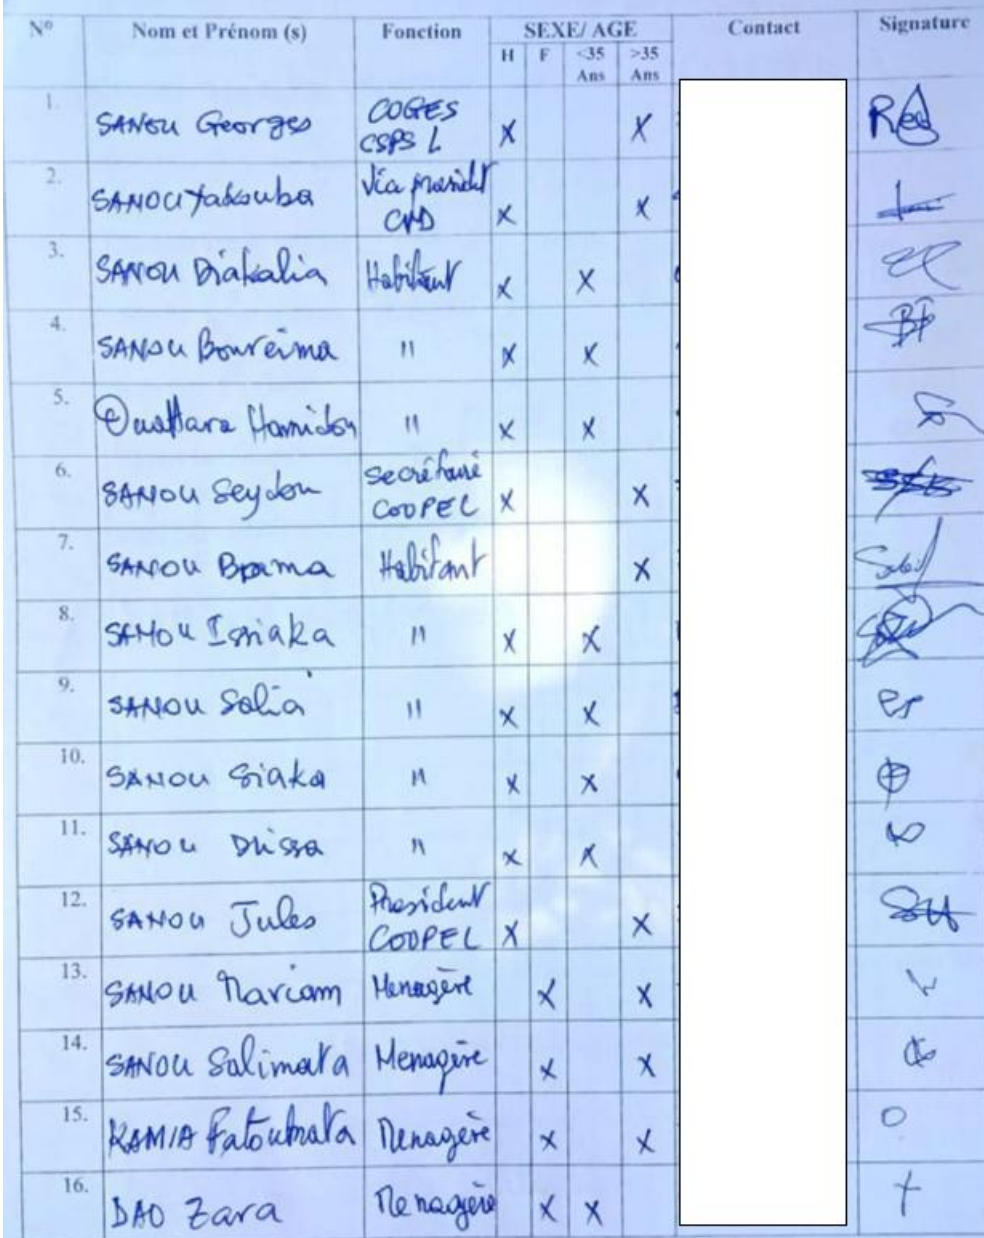 N° Nom et Prénom (s) Fonction SEXE/ AGE Contact Signature
H F <35 Ans >35 Ans
1. SANOU Georges COGES CSPS L X X
2. SANOU Yakouba Vice president CVD X X
3. SANOU Diakalia Habitant X X
4. SANOU Boureima " X X
5. Ouattara Hamidou " X X
6. SANOU Seydou Secrétaire COOPEL X X
7. SANOU Brama Habitant X
8. SANOU Issiaka " X X
9. SANOU Salia " X X
10. SANOU Siaka " X X
11. SANOU Drissa " X X
12. SANOU Jules President COOPEL X X
13. SANOU Mariam Menagère X X
14. SANOU Salimata Menagère X X
15. KAMIA Fatoumata Menagère X X
16. DAO Zara Menagère X X